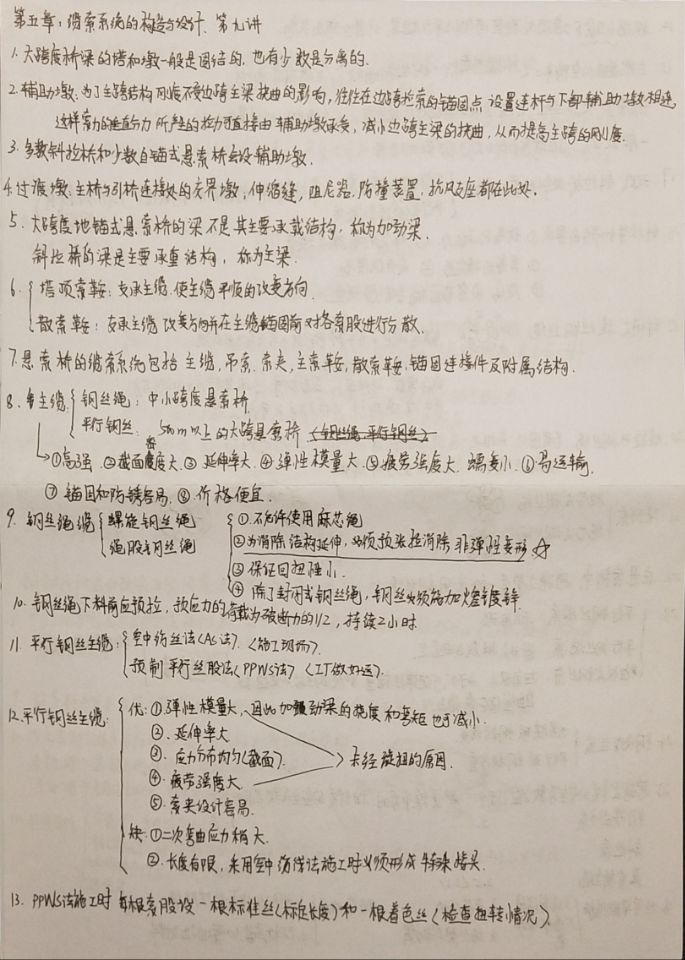 第五章：缆索系统的构造与设计. 第九讲
1. 大跨度桥梁的塔和墩一般是固结的, 也有少数是分离的.
2. 辅助墩: 为了主跨结构刚度不受边跨主梁挠曲的影响, 往往在边跨拉索的锚固点 设置连杆与下部辅助墩相连
这样索力的垂直分力所产生的拉力可直接由辅助墩承受, 减小边跨主梁的挠曲, 从而提高主跨的刚度.
3. 多数斜拉桥和少数自锚式悬索桥会设辅助墩.
4. 过渡墩: 主桥与引桥连接处的交界墩, 伸缩缝, 阻尼器, 防撞装置, 抗风支座都在此处.
5. 大跨度地锚式悬索桥的梁不是其主要承载结构, 称为加劲梁.
斜拉桥的梁是主要承重结构, 称为主梁.
6. 塔顶索鞍: 支承主缆, 使主缆平顺的改变方向.
散索鞍: 支承主缆 改变方向并在主缆锚固前对各索股进行分散.
7. 悬索桥的缆索系统包括 主缆, 吊索, 索夹, 主索鞍, 散索鞍, 锚固连接件及附属结构.
8. 主缆 钢丝绳: 中小跨度悬索桥
平行钢丝: 500m以上的大跨悬索桥 (钢丝绳, 平行钢丝)
①高强. ②截面密度大. ③延伸率大. ④弹性模量大. ⑤疲劳强度大. 蠕变小. ⑥易运输.
⑦锚固和防锈容易. ⑧价格便宜.
9. 钢丝绳缆 螺旋钢丝绳 ①不允许使用麻芯绳
绳股钢丝绳 ②为消除结构延伸, 必须预张拉消除非弹性变形 ☆
③保证回扭性小.
④除了封闭式钢丝绳, 钢丝必须施加热镀锌.
10. 钢丝绳下料前应预拉, 预应力的荷载为破断力的1/2, 持续2小时
11. 平行钢丝主缆: 空中纺丝法(AS法). (施工现场).
预制平行丝股法(PPWS法) (工厂做好运).
12. 平行钢丝主缆: 优: ①弹性模量大, 因此加劲梁的挠度和弯矩也可减小.
②. 延伸率大
③. 应力分布均匀(截面). 未经旋扭的原因.
④疲劳强度大.
⑤索夹设计容易.
缺: ①二次弯曲应力稍大.
②. 长度有限, 采用空中纺线法施工时必须形成钢丝接头.
13. PPWS法施工时 每根索股设一根标准丝(标定长度)和一根着色丝(检查扭转情况)